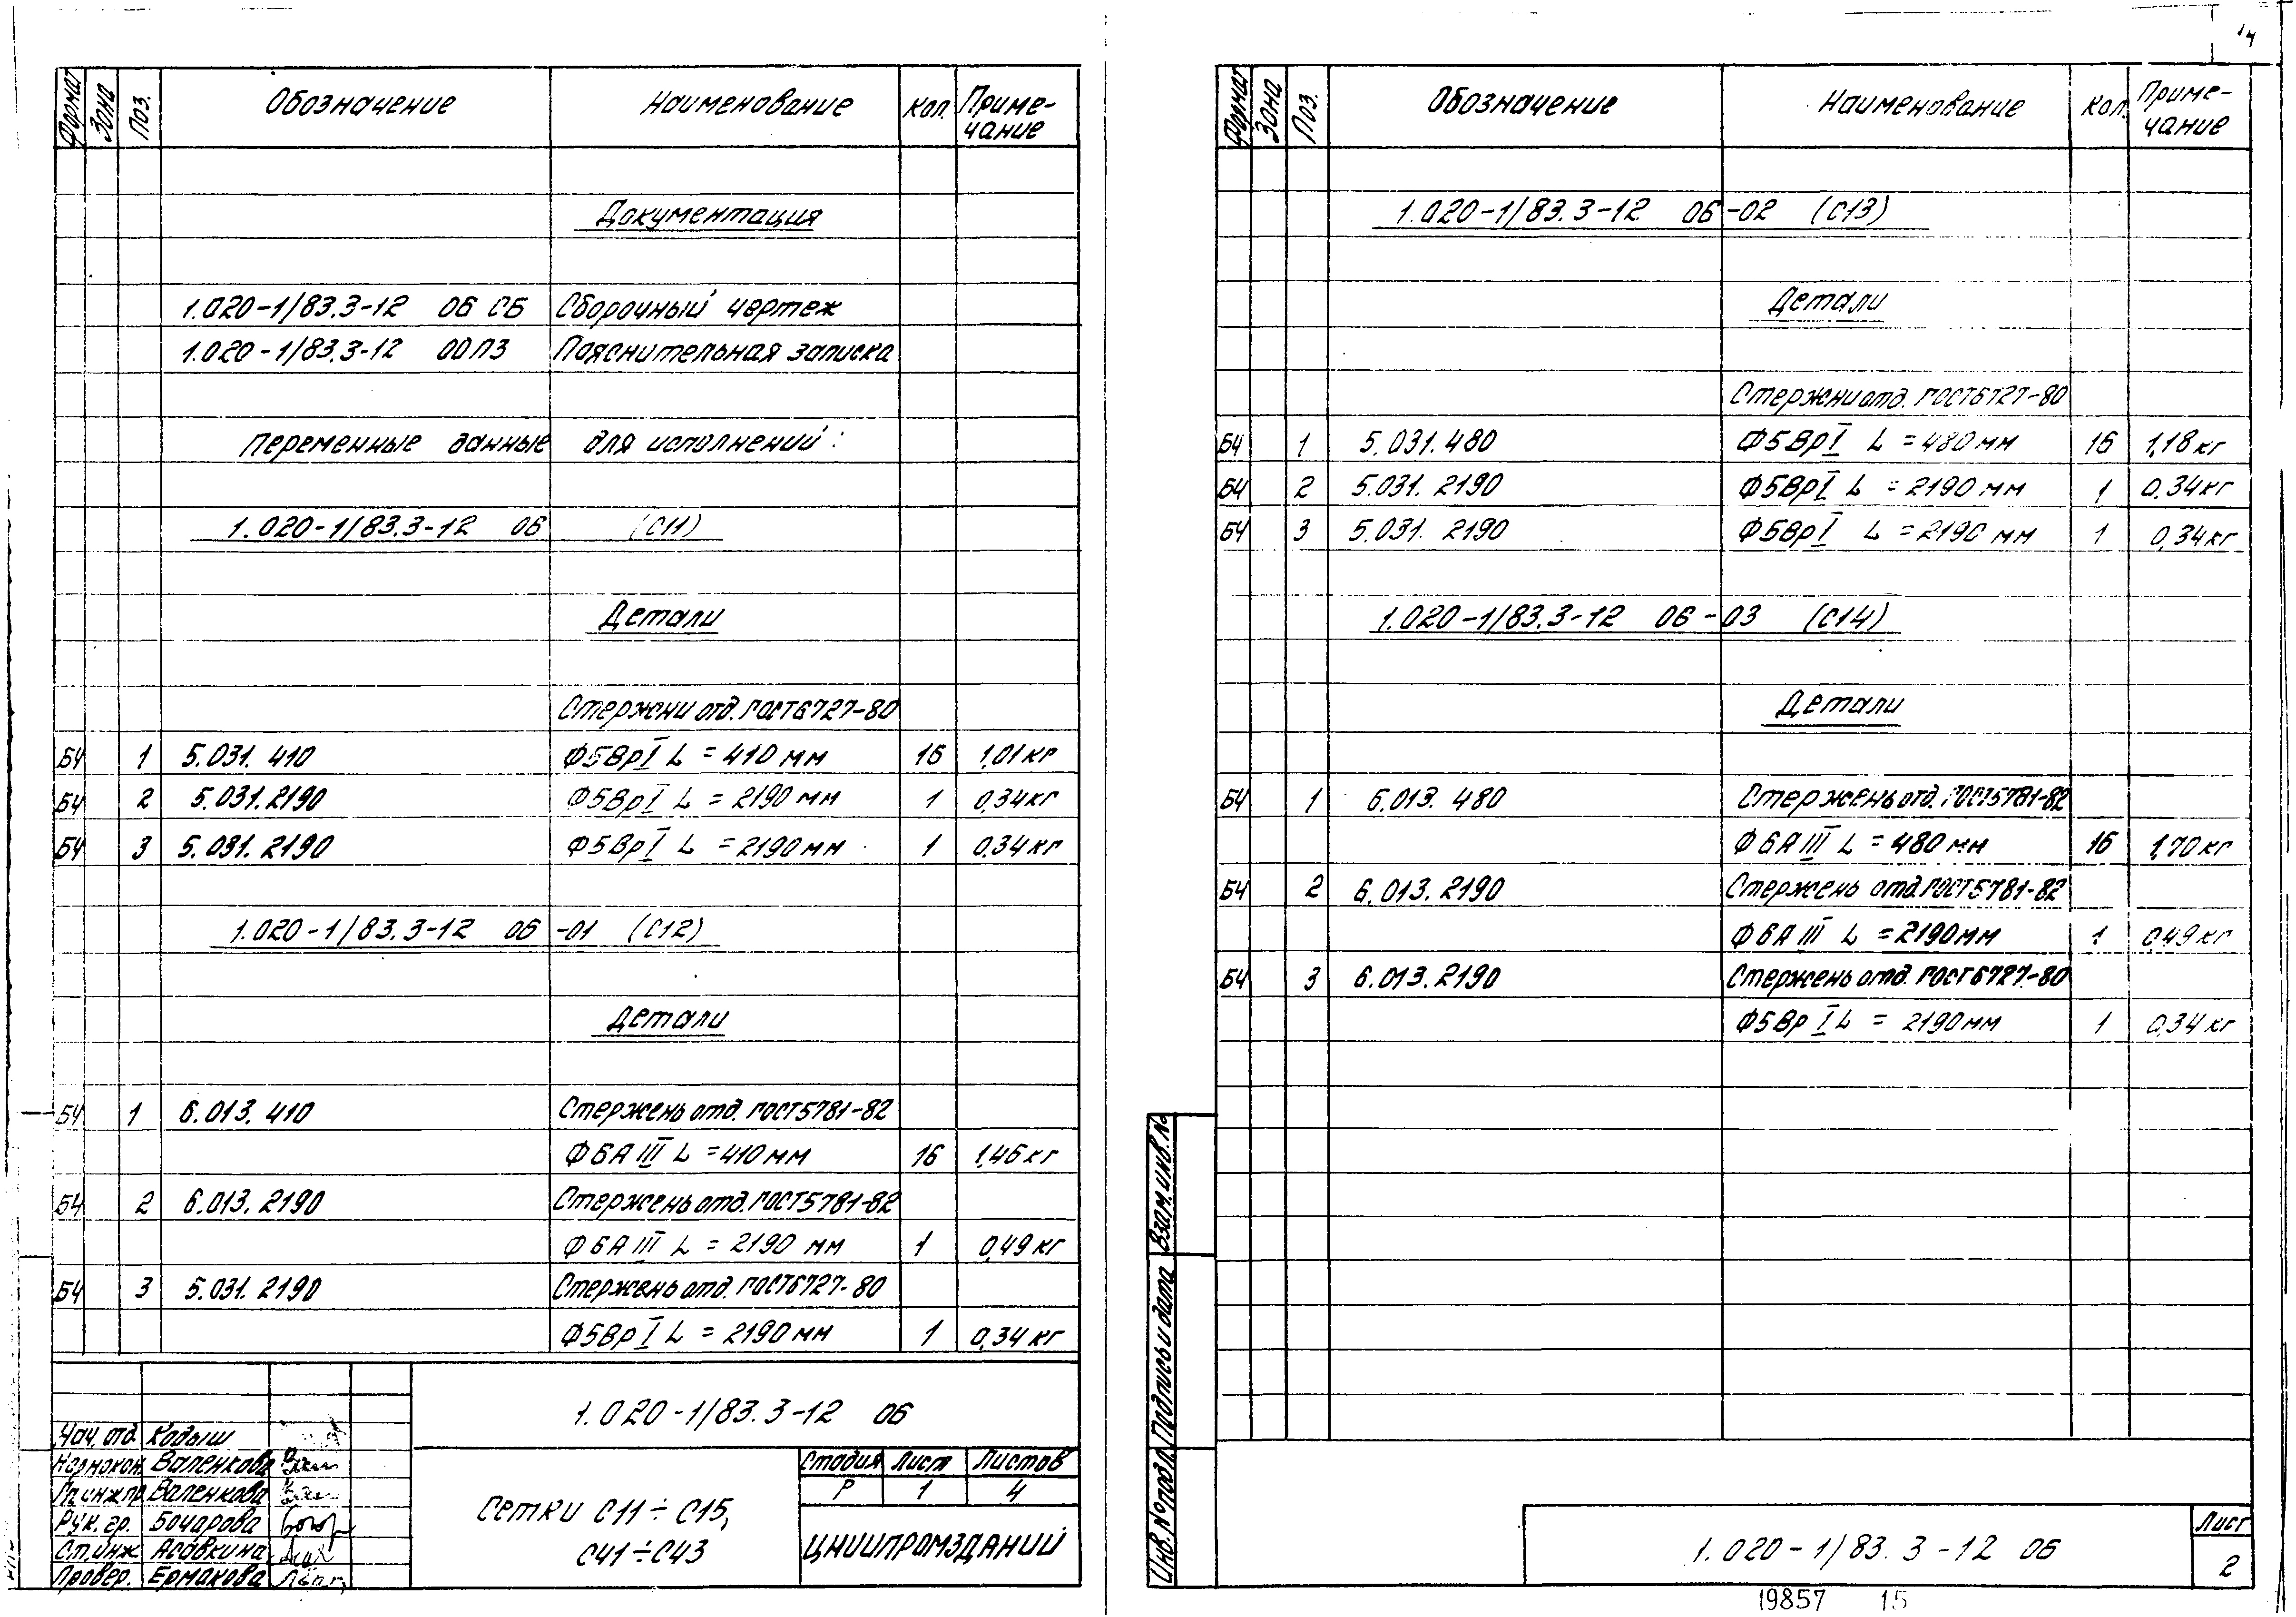 Формат Зона Поз. Обозначение Наименование Кол. Приме-
чание
Документация
1.020-1/83.3-12 06 СБ Сборочный чертеж
1.020-1/83.3-12 00ПЗ Пояснительная записка
Переменные данные для исполнений:
1.020-1/83.3-12 06 (С11)
Детали
Стержни отд. ГОСТ6727-80
БЧ 1 5.031.410 Ф5ВрI L = 410 мм 16 1,01кг
БЧ 2 5.031.2190 Ф5ВрI L = 2190 мм 1 0,34кг
БЧ 3 5.031.2190 Ф5ВрI L = 2190мм 1 0.34кг
1.020-1/83.3-12 06 -01 (С12)
Детали
БЧ 1 6.013.410 Стержень отд. ГОСТ5781-82
Ф6АIII L = 410мм 16 1,46кг
БЧ 2 6.013.2190 Стержень отд. ГОСТ5781-82
Ф6АIII L = 2190 мм 1 0,49кг
БЧ 3 5.031.2190 Стержень отд. ГОСТ6727-80
Ф5ВрI L = 2190 мм 1 0,34 кг
1.020-1/83.3-12 06
Нач. отд. Кодыш
Нормокон. Валенкова
Гл.инж.пр. Валенкова
Рук. гр. Бочарова
Ст.инж. Асавкина
Провер. Ермакова
Сетки С11÷С15,
С41÷С43
Стадия Лист Листов
Р 1 4
ЦНИИПРОМЗДАНИЙ
14
Формат Зона Поз. Обозначение Наименование Кол. Приме-
чание
1.020-1/83.3-12 06-02 (С13)
Детали
Стержни отд. ГОСТ6727-80
БЧ 1 5.031.480 Ф5ВрI L = 480мм 16 1,18кг
БЧ 2 5.031.2190 Ф5ВрI L = 2190 мм 1 0,34кг
БЧ 3 5.031.2190 Ф5ВрI L = 2190 мм 1 0,34кг
1.020-1/83.3-12 06-03 (С14)
Детали
БЧ 1 6.013.480 Стержень отд. ГОСТ5781-82
Ф6АIII L = 480 мм 16 1,70кг
БЧ 2 6.013.2190 Стержень отд. ГОСТ5781-82
Ф6АIII L = 2190мм 1 0,49кг
БЧ 3 6.013.2190 Стержень отд. ГОСТ6727-80
Ф5ВрI L = 2190мм 1 0,34 кг
Взам. инв. №
Подпись и дата
Инв. № подл.
1.020-1/83.3-12 06
Лист
2
19857 15